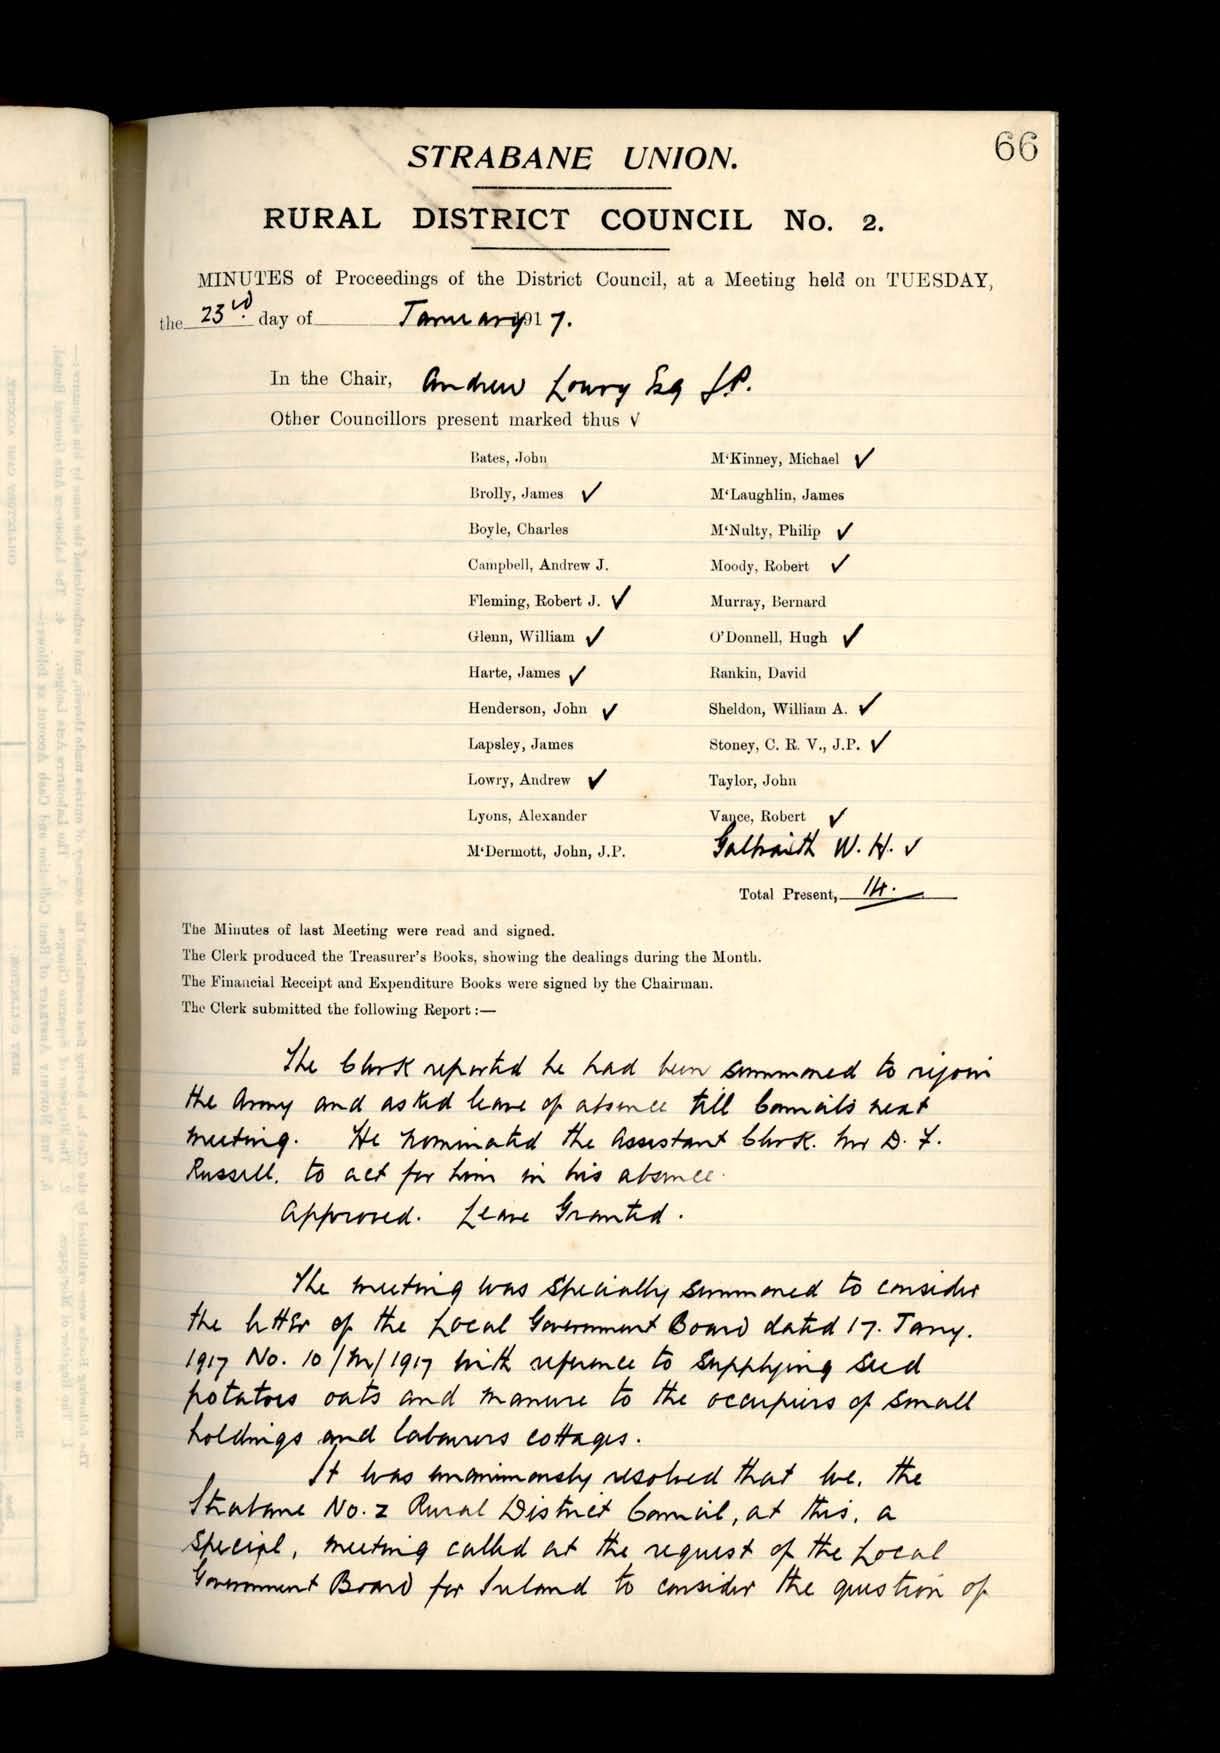 66
STRABANE UNION.
RURAL DISTRICT COUNCIL No. 2.
MINUTES of Proceedings of the District Council, at a Meeting held on TUESDAY,
the 23rd. day of January 1917.
In the Chair, Andrew Lowry Esq J.P.
Other Councillors present marked thus √
Bates, John
Brolly, James ✓
Boyle, Charles
Campbell, Andrew J.
Fleming, Robert J. ✓
Glenn, William ✓
Harte, James ✓
Henderson, John ✓
Lapsley, James
Lowry, Andrew ✓
Lyons, Alexander
M'Dermott, John, J.P.
M'Kinney, Michael ✓
M'Laughlin, James
M'Nulty, Philip ✓
Moody, Robert ✓
Murray, Bernard
O'Donnell, Hugh ✓
Rankin, David
Sheldon, William A. ✓
Stoney, C. R. V., J.P. ✓
Taylor, John
Vance, Robert ✓
Galbraith W. H. ✓
Total Present, 14.
The Minutes of last Meeting were read and signed.
The Clerk produced the Treasurer's Books, showing the dealings during the Month.
The Financial Receipt and Expenditure Books were signed by the Chairman.
The Clerk submitted the following Report :—
The Clerk reported he had been summoned to rejoin
the Army and asked leave of absence till Councils next
meeting. He nominated the Assistant Clerk. Mr D. F.
Russell, to act for him in his absence.
Approved. Leave Granted.
The meeting was specially summoned to consider
the letter of the Local Government Board dated 17. Jany.
1917 No. 10/M/1917 with reference to supplying seed
potatoes oats and manure to the occupiers of small
holdings and labourers cottages.
It was unanimously resolved that we, the
Strabane No. 2 Rural District Council, at this, a
special, meeting called at the request of the Local
Government Board for Ireland to consider the question of